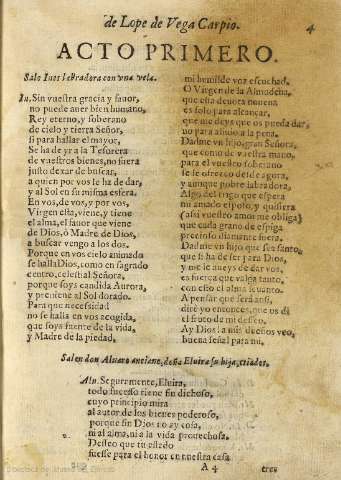 de Lope de Vega Carpio. 4
ACTO PRIMERO.
Sale Ines labradora con vna vela.
In. Sin vuestra gracia y fauor,
no puede auer bien humano,
Rey eterno, y soberano
de cielo y tierra Señor,
si para hallar el mayor
Se ha de yr a la Tesorera
de vuestros bienes, no fuera
justo dexar de buscar,
a quien por vos le ha de dar,
y al Sol en su misma esfera.
En vos, de vos, y por vos,
Virgen està, viene, y tiene
el alma, el fauor que viene
de Dios, ò Madre de Dios,
a buscar vengo a los dos.
Porque en vos cielo animado
se halla Dios, como en sagrado
centro, celestial Señora,
porque soys candida Aurora,
y preuiene al Sol dorado.
Para que necessidad
no se halla en vos acogida,
que soys fuente de la vida,
y Madre de la piedad.
mi humilde voz escuchad,
O Virgen de la Almudena,
que esta deuota nouena
es solo para alcançar,
que me deys que os pueda dar,
no para aliuio a la pena.
Dadme vn hijo, gran Señora,
que como de vuestra mano,
para el vuestro soberano
se le ofrezco desde agora,
y aunque pobre labradora,
Algo del trigo que espera
mi amado esposo, y quisiera
(assi vuestro amor me obliga)
que cada grano de espiga
precioso diamante fuera.
Dadme vn hijo que sea santo,
que si ha de ser para Dios,
y me le aueys de dar vos,
es fuerça que valga tanto,
con esto el alma leuanto
A pensar que serà assi,
dirè yo entonces, que os di
el fruto de mi desseo.
Ay Dios! a mis desseos veo,
buena señal para mi.
Salen don Aluaro anciano, doña Eluira su hija, criados.
Alu. Seguramente, Eluira,
todo sucesso tiene fin dichoso,
cuyo principio mira
al autor de los bienes poderoso,
porque sin Dios no ay cosa,
ni al alma, ni a la vida prouechosa.
Desseo que tu estado
fuesse para el honor en nuestra casa
A 4 tres
Biblioteca